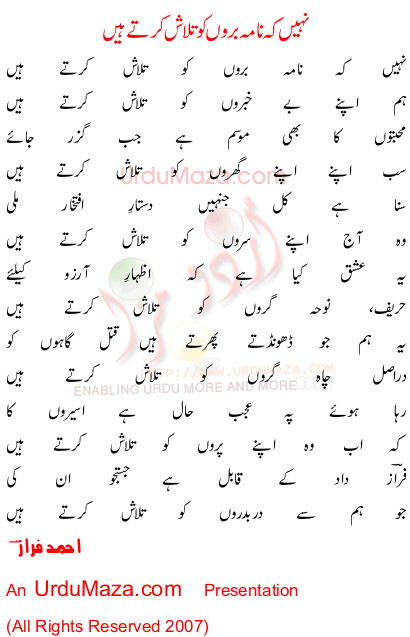 نہیں کہ نامہ بروں کو تلاش کرتے ہیں
نہیں کہ نامہ بروں کو تلاش کرتے ہیں
ہم اپنے بے خبروں کو تلاش کرتے ہیں
محبتوں کا بھی موسم ہے جب گزر جائے
سب اپنے اپنے گھروں کو تلاش کرتے ہیں
UrduMaza.com
سنا ہے کل جنہیں دستارِ افتخار ملی
وہ آج اپنے سروں کو تلاش کرتے ہیں
یہ عشق کیا ہے کہ اظہارِ آرزو کیلئے
حریف، نوحہ گروں کو تلاش کرتے ہیں
اردو مزا
یہ ہم جو ڈھونڈتے پھرتے ہیں قتل گاہوں کو
HTTP://WWW.URDUMAZA.COM
دراصل چاہ گروں کو تلاش کرتے ہیں
ENABLING URDU MORE AND MORE
رہا ہوئے پہ عجب حال ہے اسیروں کا
کہ اب وہ اپنے پروں کو تلاش کرتے ہیں
فرازؔ داد کے قابل ہے جستجو ان کی
جو ہم سے دربدروں کو تلاش کرتے ہیں
احمد فرازؔ
An UrduMaza.com Presentation
(All Rights Reserved 2007)